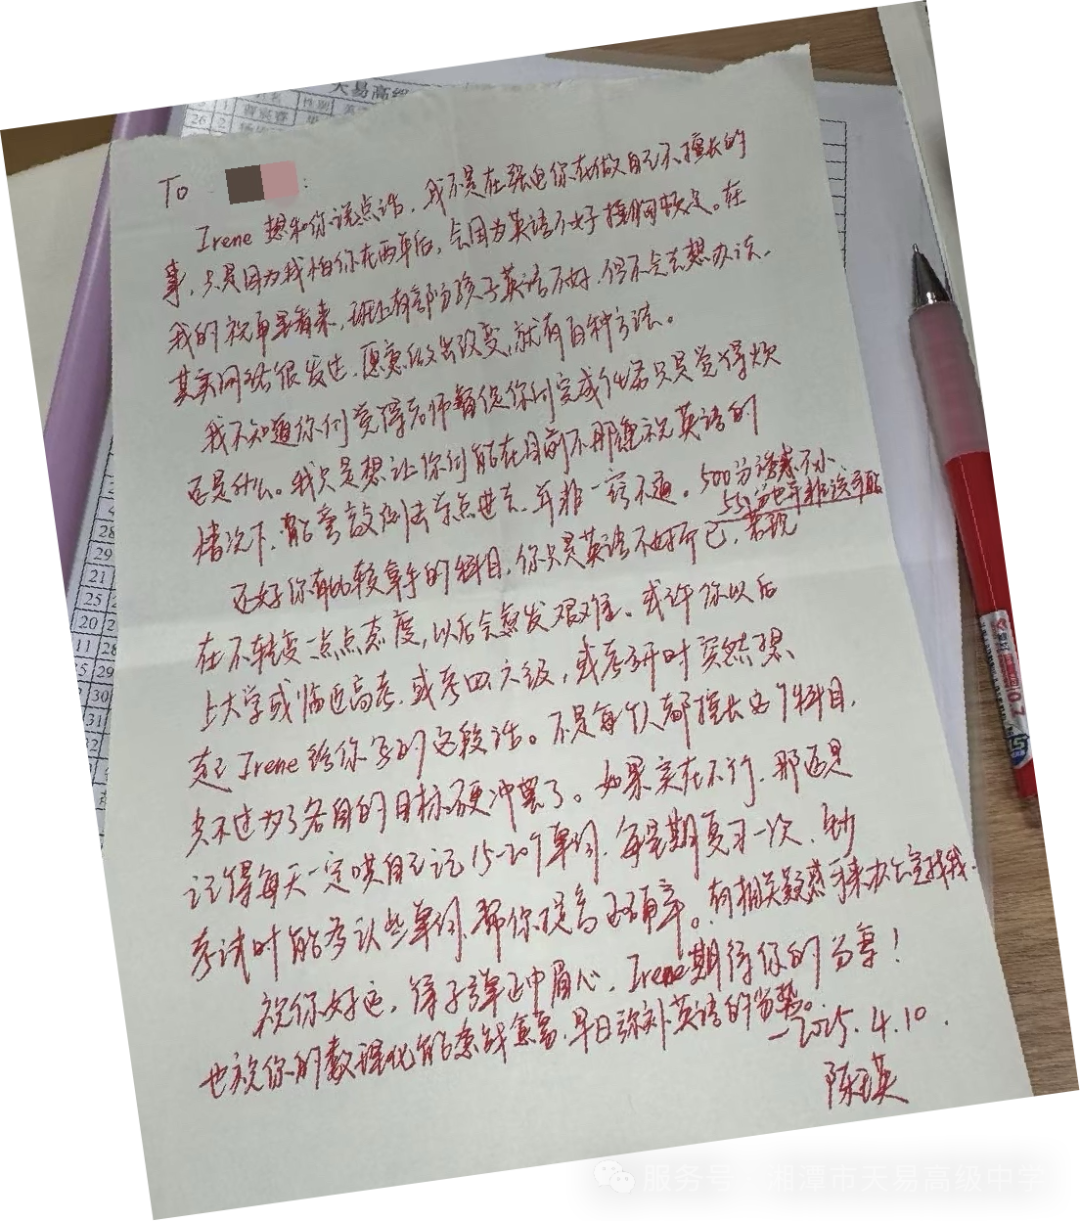 To :
Irene 想和你说点话，我不是在强迫你在做自己不擅长的
事，只是因为我怕你在两年后，会因为英语不好捶胸顿足。在
我的视角里看来，班上有部分孩子英语不好，但不会去想办法，
其实网络很发达，愿意做出改变，就有百种方法。
我不知道你们觉得老师督促你们完成任务只是觉得烦
还是什么。我只是想让你们能在目前不那么重视英语的
情况下，能掌握
一窍不通。500分诱惑不小
还好你有比较拿手的科目，你只是英语不好而已，若现
在不转变一点点态度，以后会愈发艰难。或许你以后
上大学或临近高考，或考四六级，或考研时突然想
起 Irene 给你写的这段话。不是每个人都擅长这个科目，
只不过为了各自的目标硬冲罢了。如果实在不行，那还是
记得每天一定哄自己记15-20个单词，每星期复习一次，
考试时能多认些单词，帮你提高正确率。有相关疑惑可来办公室找我。
祝你好运，得子弹正中眉心，Irene期待你的分享！
也祝你的数理化能愈战愈勇，早日弥补英语的劣势。
—2025.4.10.
陈瑛
天易高级
姓名 性别
26 2
28
29
21
25
20
11 28
29
30
31
服务号 · 湘潭市天易高级中学